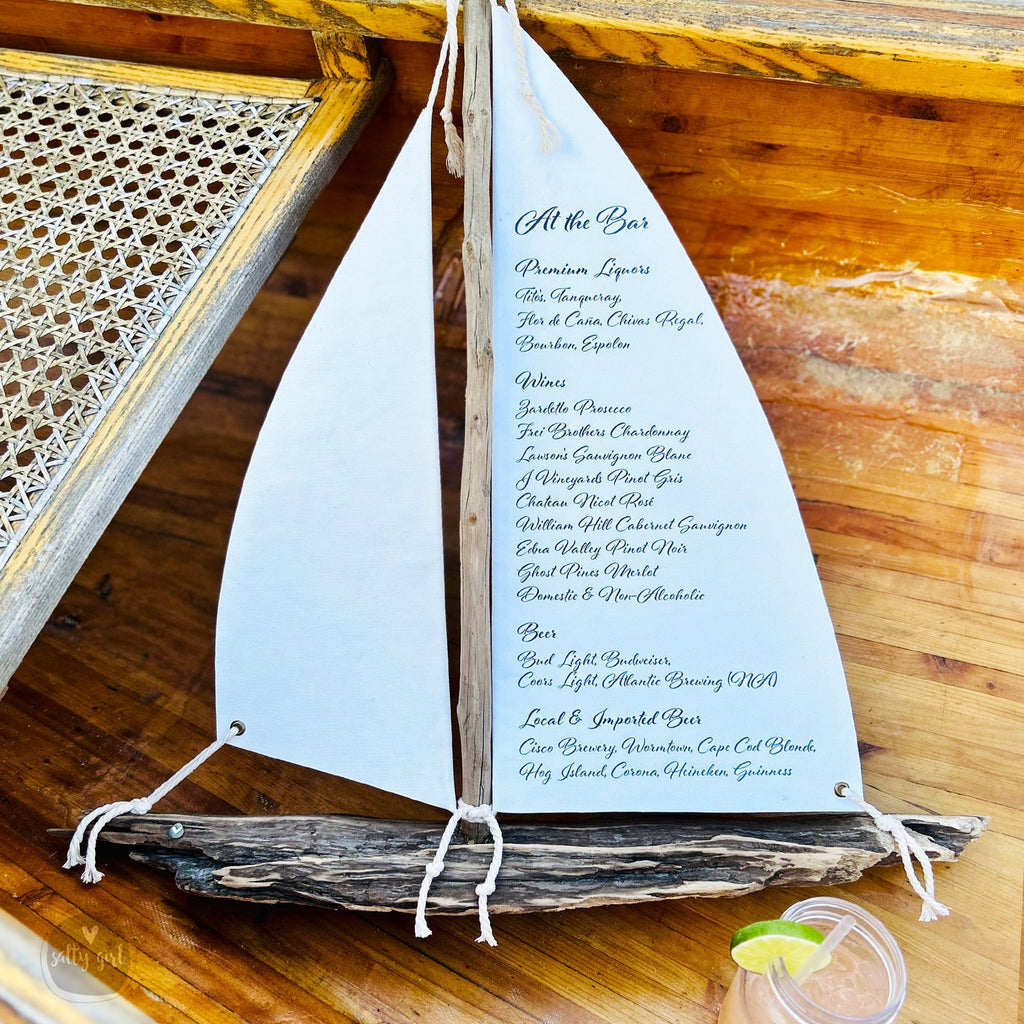 At the Bar
Premium Liquors
Tito's, Tanqueray,
Flor de Caña, Chivas Regal,
Bourbon, Espolon
Wines
Zardetto Prosecco
Frei Brothers Chardonnay
Lawson's Sauvignon Blanc
J Vineyards Pinot Gris
Chateau Nicot Rosé
William Hill Cabernet Sauvignon
Edna Valley Pinot Noir
Ghost Pines Merlot
Domestic & Non-Alcoholic
Beer
Bud Light, Budweiser,
Coors Light, Atlantic Brewing (NA)
Local & Imported Beer
Cisco Brewery, Wormtown, Cape Cod Blonde,
Hog Island, Corona, Heineken, Guinness
salty girl